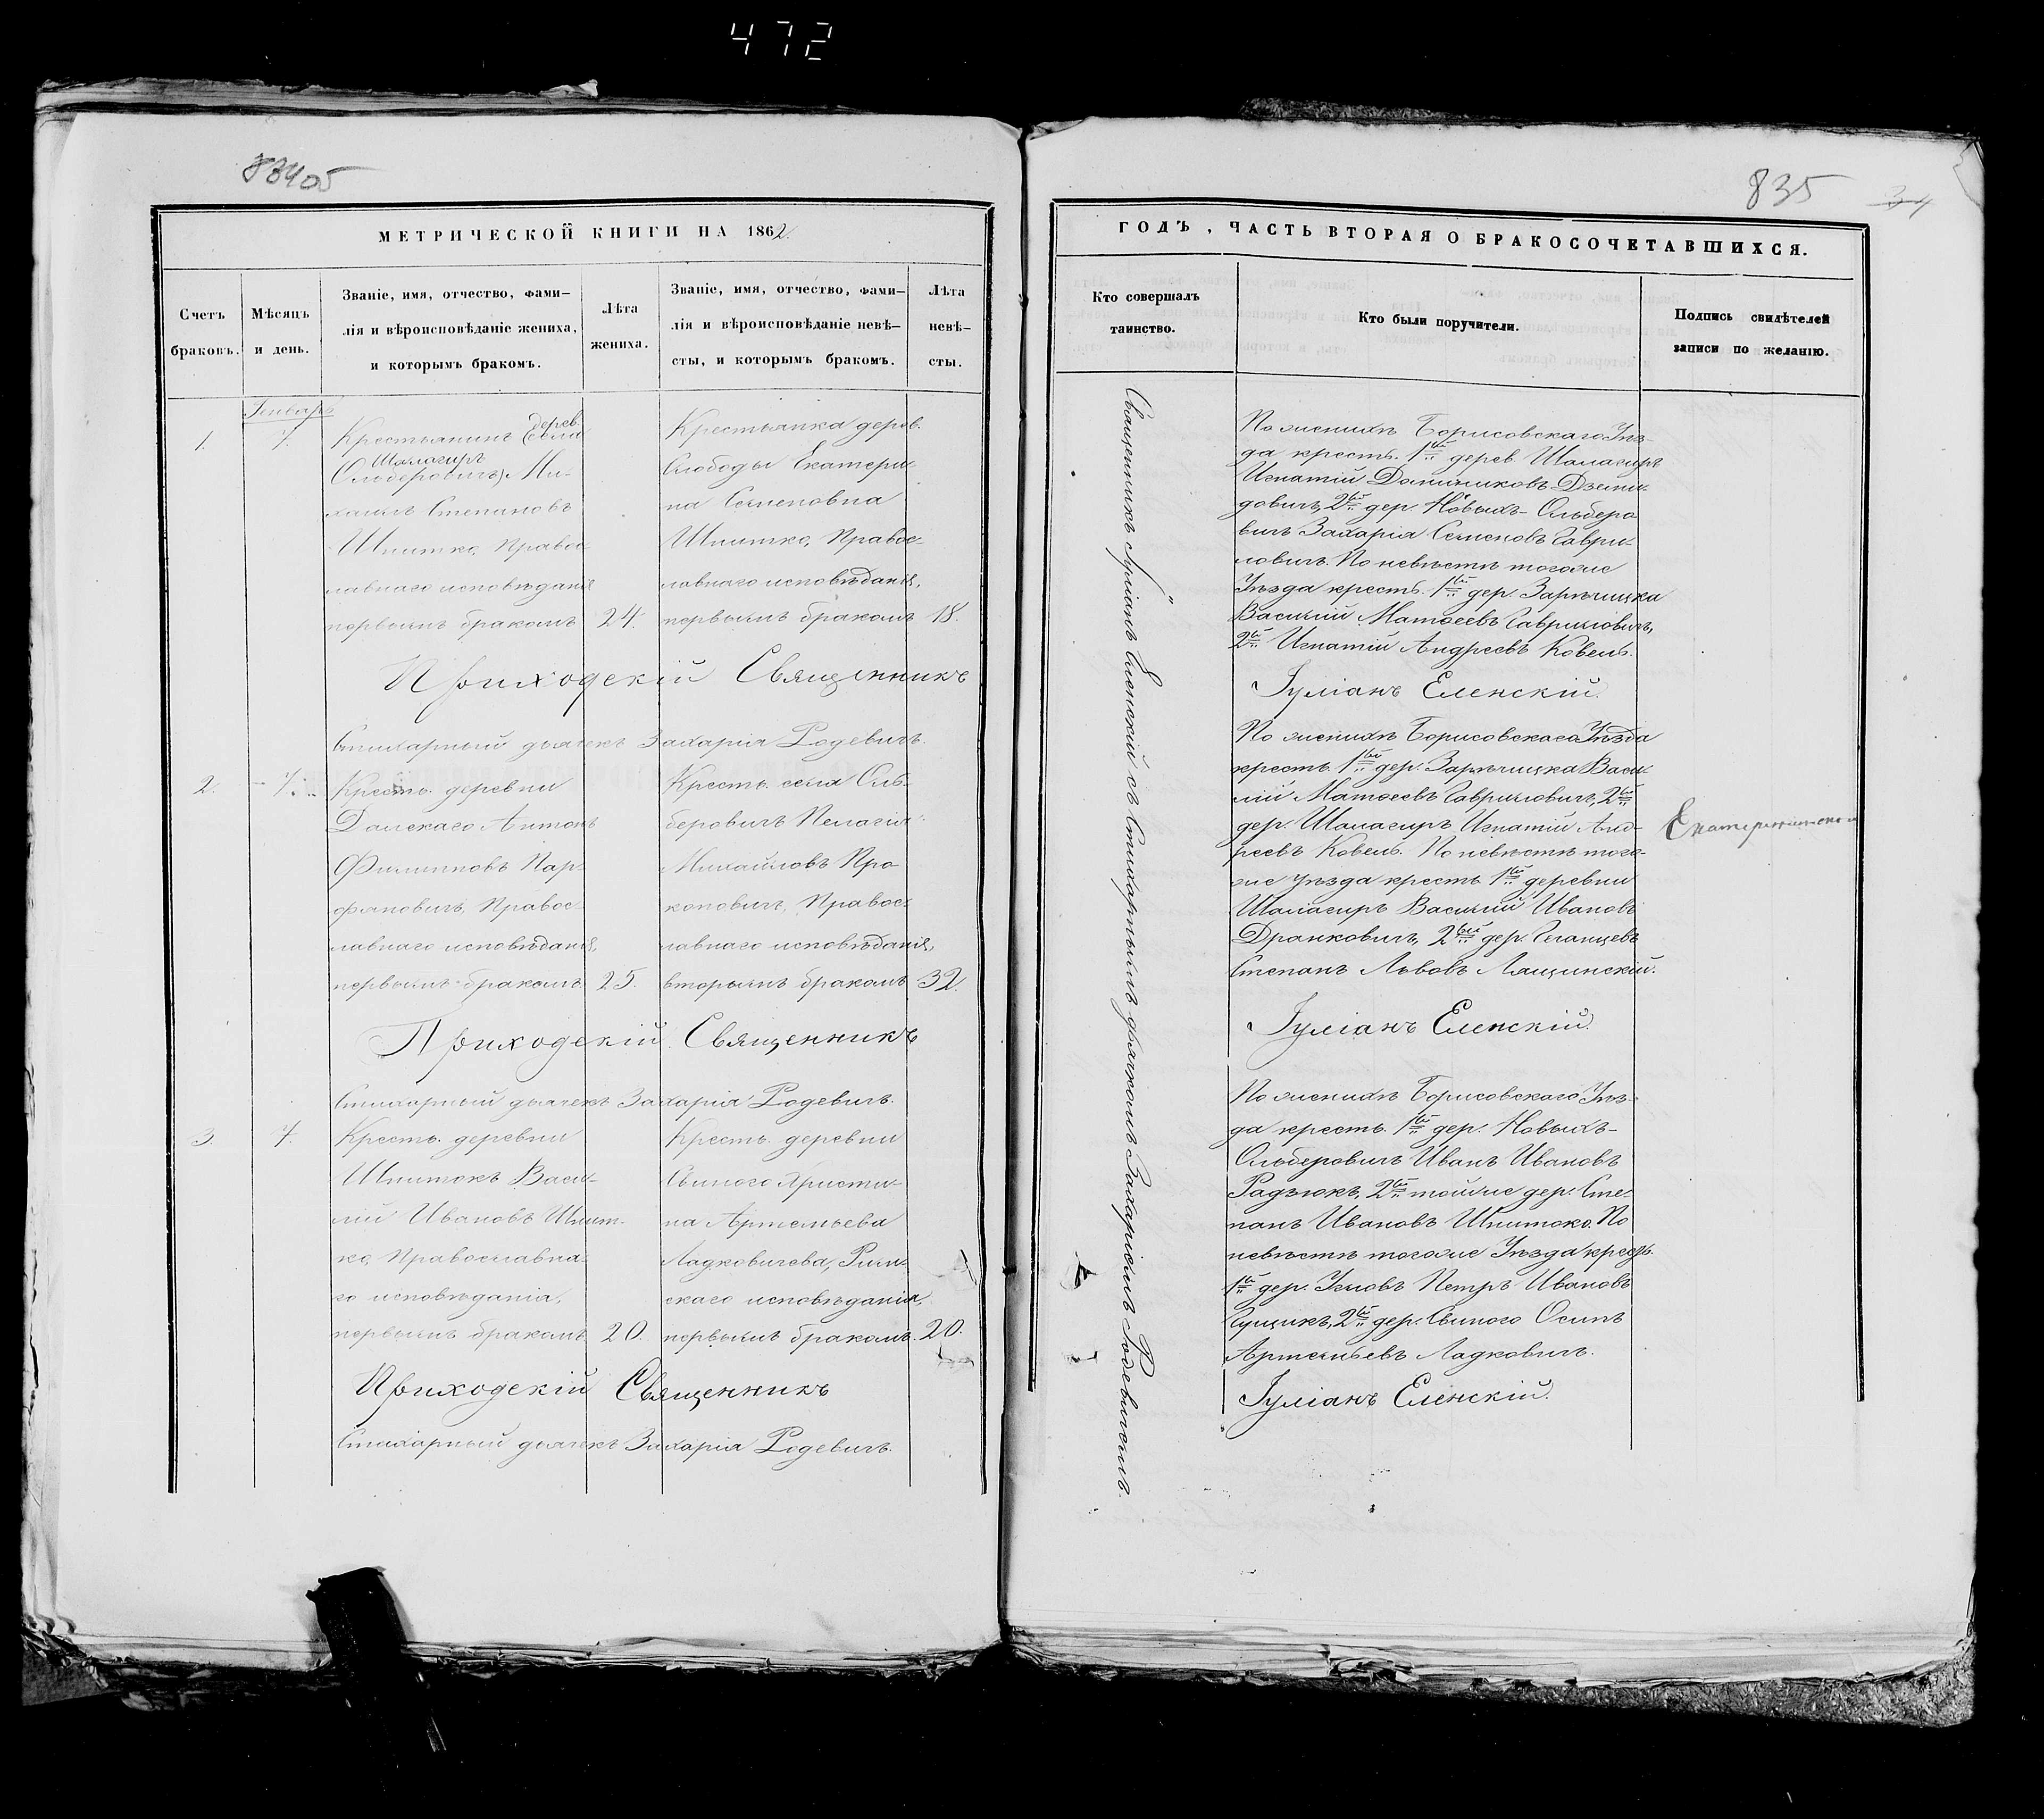 472
835
34
МЕТРИЧЕСКОЙ КНИГИ НА 1862.
Счетъ
браковъ.
Мѣсяцъ
и день.
Званіе, имя, отчество, фами-
лія и вѣроисповѣданіе жениха,
и которымъ бракомъ.
Лѣта
жениха.
Званіе, имя, отчество, фами-
лія и вѣроисповѣданіе невѣ-
сты, и которымъ бракомъ.
Лѣта
невѣ-
сты.
Генварь
1.
7.
Крестьянинъ дерев.
Шалагиръ
Ольберовичъ, Ми-
хаилъ Степановъ
Шпитко, Правос-
лавнаго исповѣданія
первымъ бракомъ
24.
Крестьянка дерев.
Слободы Екатери-
на Семеновна
Шпитко, Правос-
лавнаго исповѣданія,
первымъ бракомъ
18.
Приходскій Священникъ
Стихарный дьячекъ Захарія Родевичъ.
2.
7.
Кресть. деревни
Домскаго Антонъ
Филиповъ Пар-
фяновичъ, Правос-
лавнаго исповѣданія,
первымъ бракомъ
25.
Кресть. села Оль-
беровичъ Пелагія
Михайлова Про-
коповичъ, Правос-
лавнаго исповѣданія,
вторымъ бракомъ
32.
Приходскій Священникъ
Стихарный дьячекъ Захарія Родевичъ.
3.
7.
Кресть. деревни
Шпитокъ Васи-
лій Ивановъ Шпит-
ко, Православна-
го исповѣданія,
первымъ бракомъ
20.
Кресть. деревни
Свиного Христи-
на Артемьева
Ладковичева, Рим-
скаго исповѣданія,
первымъ бракомъ.
20.
Приходскій Священникъ
Стихарный дьячекъ Захарія Родевичъ.
ГОДЪ, ЧАСТЬ ВТОРАЯ О БРАКОСОЧЕТАВШИХСЯ.
Кто совершалъ
таинство.
Кто были поручители.
Подпись свидѣтелей
записи по желанію.
Священникъ Іуліанъ Еленскій съ Стихарнымъ дьячкомъ Захаріемъ Родевичемъ.
По женихѣ Борисовскаго Уѣз-
да кресть. 1ый дерев. Шалагиръ
Игнатій Доминиковъ Дземи-
довичъ, 2ой дер. Новыхъ-Ольберо-
вичъ Захарія Семеновъ Гаври-
ловичъ. По невѣстѣ тогоже
Уѣзда кресть. 1ый дер. Зарѣчицка
Василій Матѳеевъ Гавриловичъ,
2ой Игнатій Андреевъ Ковель.
Іуліанъ Еленскій.
По женихѣ Борисовскаго Уѣзда
кресть. 1ый дер. Зарѣчицка Васи-
лій Матѳеевъ Гавриловичъ, 2ой
дер. Шалагиръ Игнатій Анд-
реевъ Ковель. По невѣстѣ того-
же уѣзда кресть. 1ый деревни
Шалагиръ Василій Ивановъ
Дранковичъ, 2ой дер.
Степанъ Львовъ Лащинскій.
Іуліанъ Еленскій.
По женихѣ Борисовскаго Уѣз-
да кресть. 1ый дер. Новыхъ-
Ольберовичъ Иванъ Ивановъ
Радзюкъ, 2ой тойже дер. Сте-
панъ Ивановъ Шпитоко. По
невѣстѣ тогоже Уѣзда кресть.
1ый дер. Углобъ Петръ Ивановъ
2ой дер. Свиного Осипъ
Артемьевъ Ладковичъ.
Іуліанъ Еленскій.